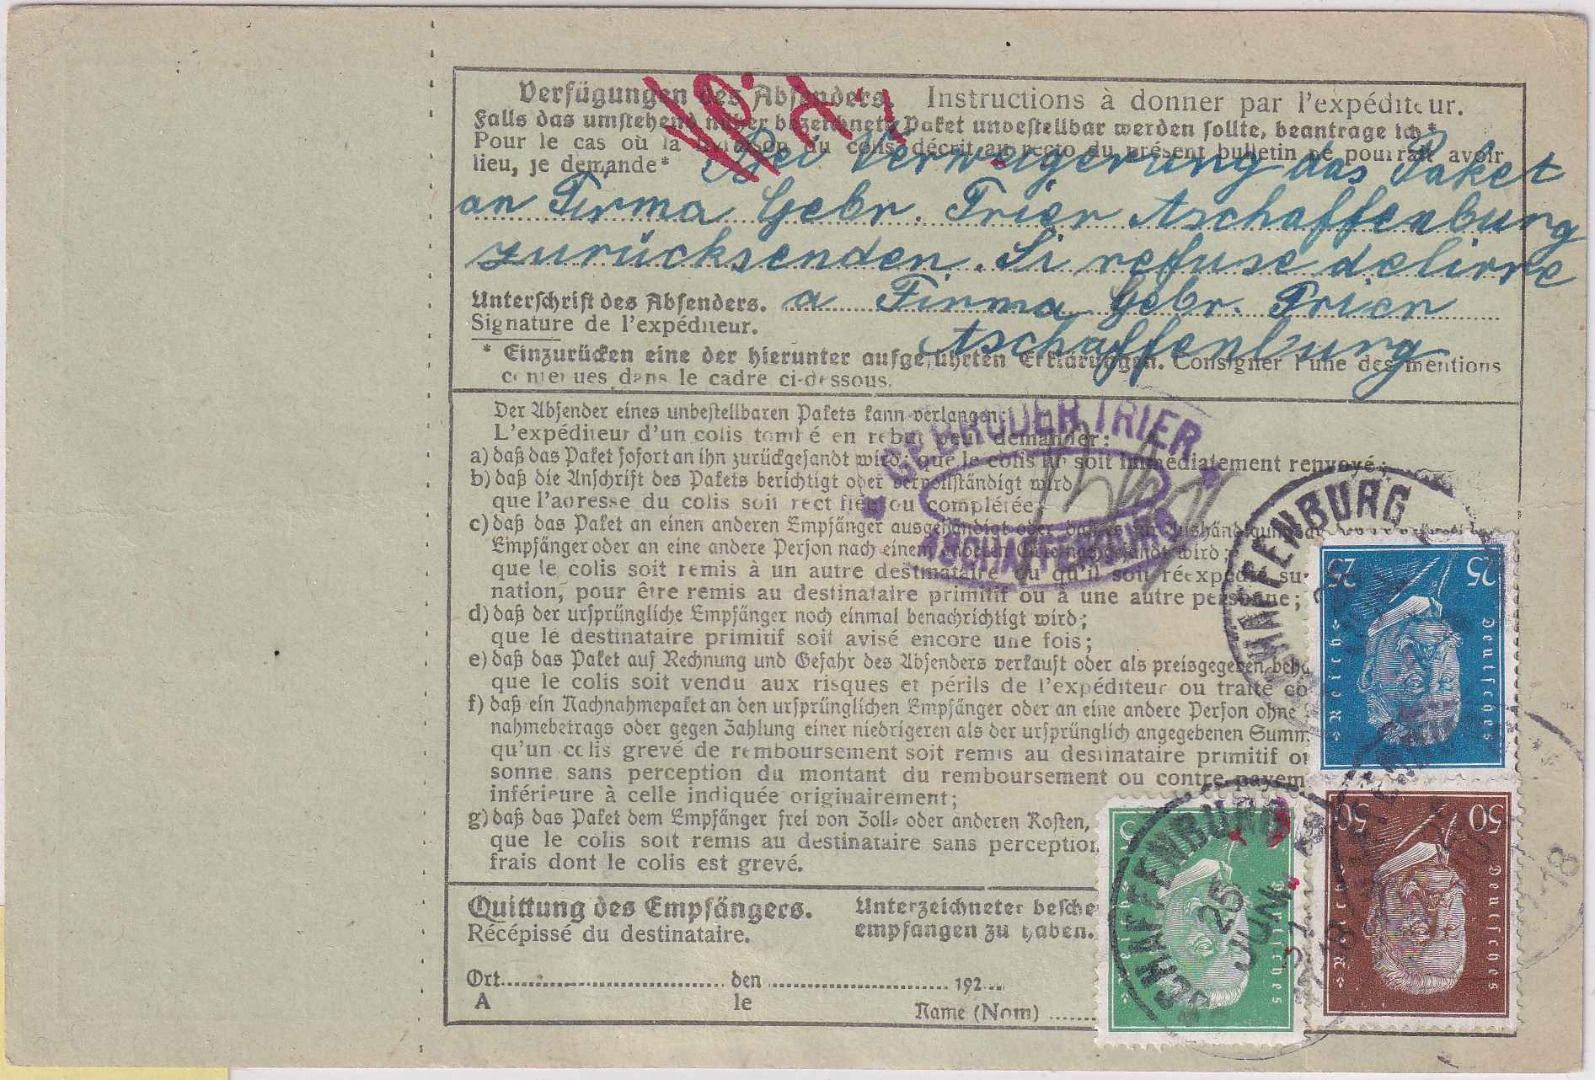 Verfügungen des Absenders. Instructions à donner par l'expéditeur.
Falls das umstehend näher bezeichnete Paket unbestellbar werden sollte, beantrage ich*
Pour le cas où la livraison du colis décrit au recto du présent bulletin ne pourrait avoir
lieu, je demande* Bei Verweigerung das Paket
an Firma Gebr. Trier Aschaffenburg
zurücksenden. Si refuse delivre
Unterschrift des Absenders. a Firma Gebr. Trier
Signature de l'expéditeur.
Aschaffenburg
* Einzurücken eine der hierunter aufgeführten Erklärungen. Consigner l'une des mentions
contenues dans le cadre ci-dessous.
Der Absender eines unbestellbaren Pakets kann verlangen:
L'expéditeur d'un colis tombé en rebut peut demander:
a) daß das Paket sofort an ihn zurückgesandt wird; que le colis lui soit immédiatement renvoyé;
b) daß die Anschrift des Pakets berichtigt oder vervollständigt wird
que l'adresse du colis soit rectifiée ou complétée
c) daß das Paket an einen anderen Empfänger ausgehändigt oder
Empfänger oder an eine andere Person nach einem anderen Orte nachgesandt wird;
que le colis soit remis à un autre destinataire ou qu'il soit réexpédié su
nation, pour être remis au destinataire primitif ou à une autre personne;
d) daß der ursprüngliche Empfänger noch einmal benachrichtigt wird;
que le destinataire primitif soit avisé encore une fois;
e) daß das Paket auf Rechnung und Gefahr des Absenders verkauft oder als preisgegeben beha
que le colis soit vendu aux risques et périls de l'expéditeur ou traité co
f) daß ein Nachnahmepaket an den ursprünglichen Empfänger oder an eine andere Person ohne
nahmebetrags oder gegen Zahlung einer niedrigeren als der ursprünglich angegebenen Summ
qu'un colis grevé de remboursement soit remis au destinataire primitif o
sonne sans perception du montant du remboursement ou contre payem
inférieure à celle indiquée originairement;
g) daß das Paket dem Empfänger frei von Zoll- oder anderen Kosten,
que le colis soit remis au destinataire sans perception
frais dont le colis est grevé.
GEBRÜDER TRIER
ASCHAFFENBURG
Quittung des Empfängers. Unterzeichneter besche
Récépissé du destinataire. empfangen zu haben.
Ort den 192
A le
Name (Nom)
ASCHAFFENBURG
25
25
Deutsches
Reich
50
50
Deutsches
Reich
5
Deutsches
Reich
ASCHAFFENBURG
25
JUN.